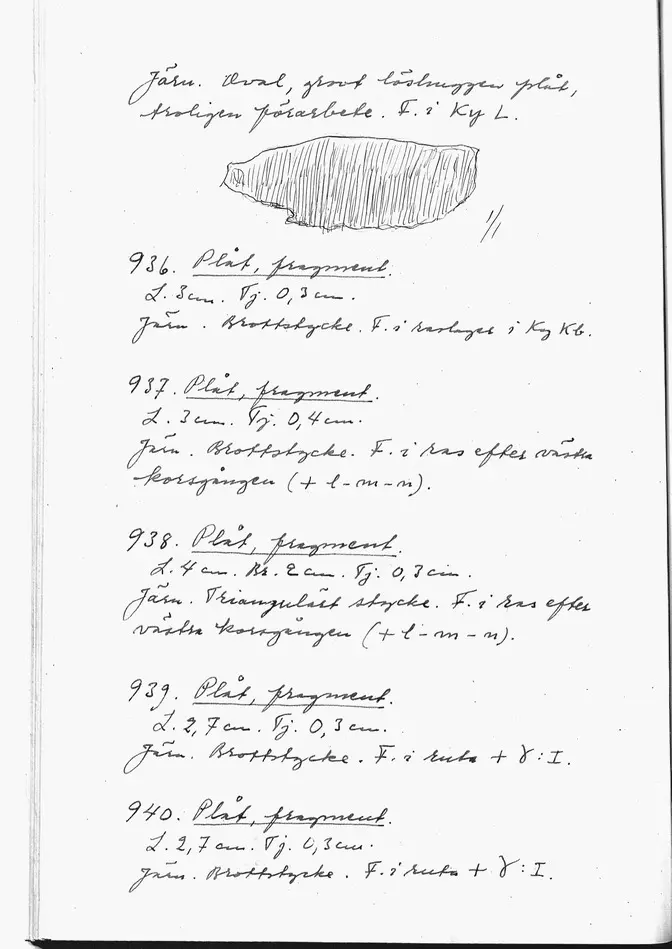 Järn. Oval, grovt löshuggen plåt,
troligen förarbete. F. i Ky L.
1/1
936. Plåt, fragment.
L. 3 cm. Tj. 0,3 cm.
Järn. Brottstycke. F. i raslager i Ky Kb.
937. Plåt, fragment.
L. 3 cm. Tj. 0,4 cm.
Järn. Brottstycke. F. i ras efter västra
korsgången (+ l - m - n).
938. Plåt, fragment.
L. 4 cm. Br. 2 cm. Tj. 0,3 cm.
Järn. Triangulärt stycke. F. i ras efter
västra korsgången (+ l - m - n).
939. Plåt, fragment.
L. 2,7 cm. Tj. 0,3 cm.
Järn. Brottstycke. F. i ruta + γ : I.
940. Plåt, fragment.
L. 2,7 cm. Tj. 0,3 cm.
Järn. Brottstycke. F. i ruta + γ : I.